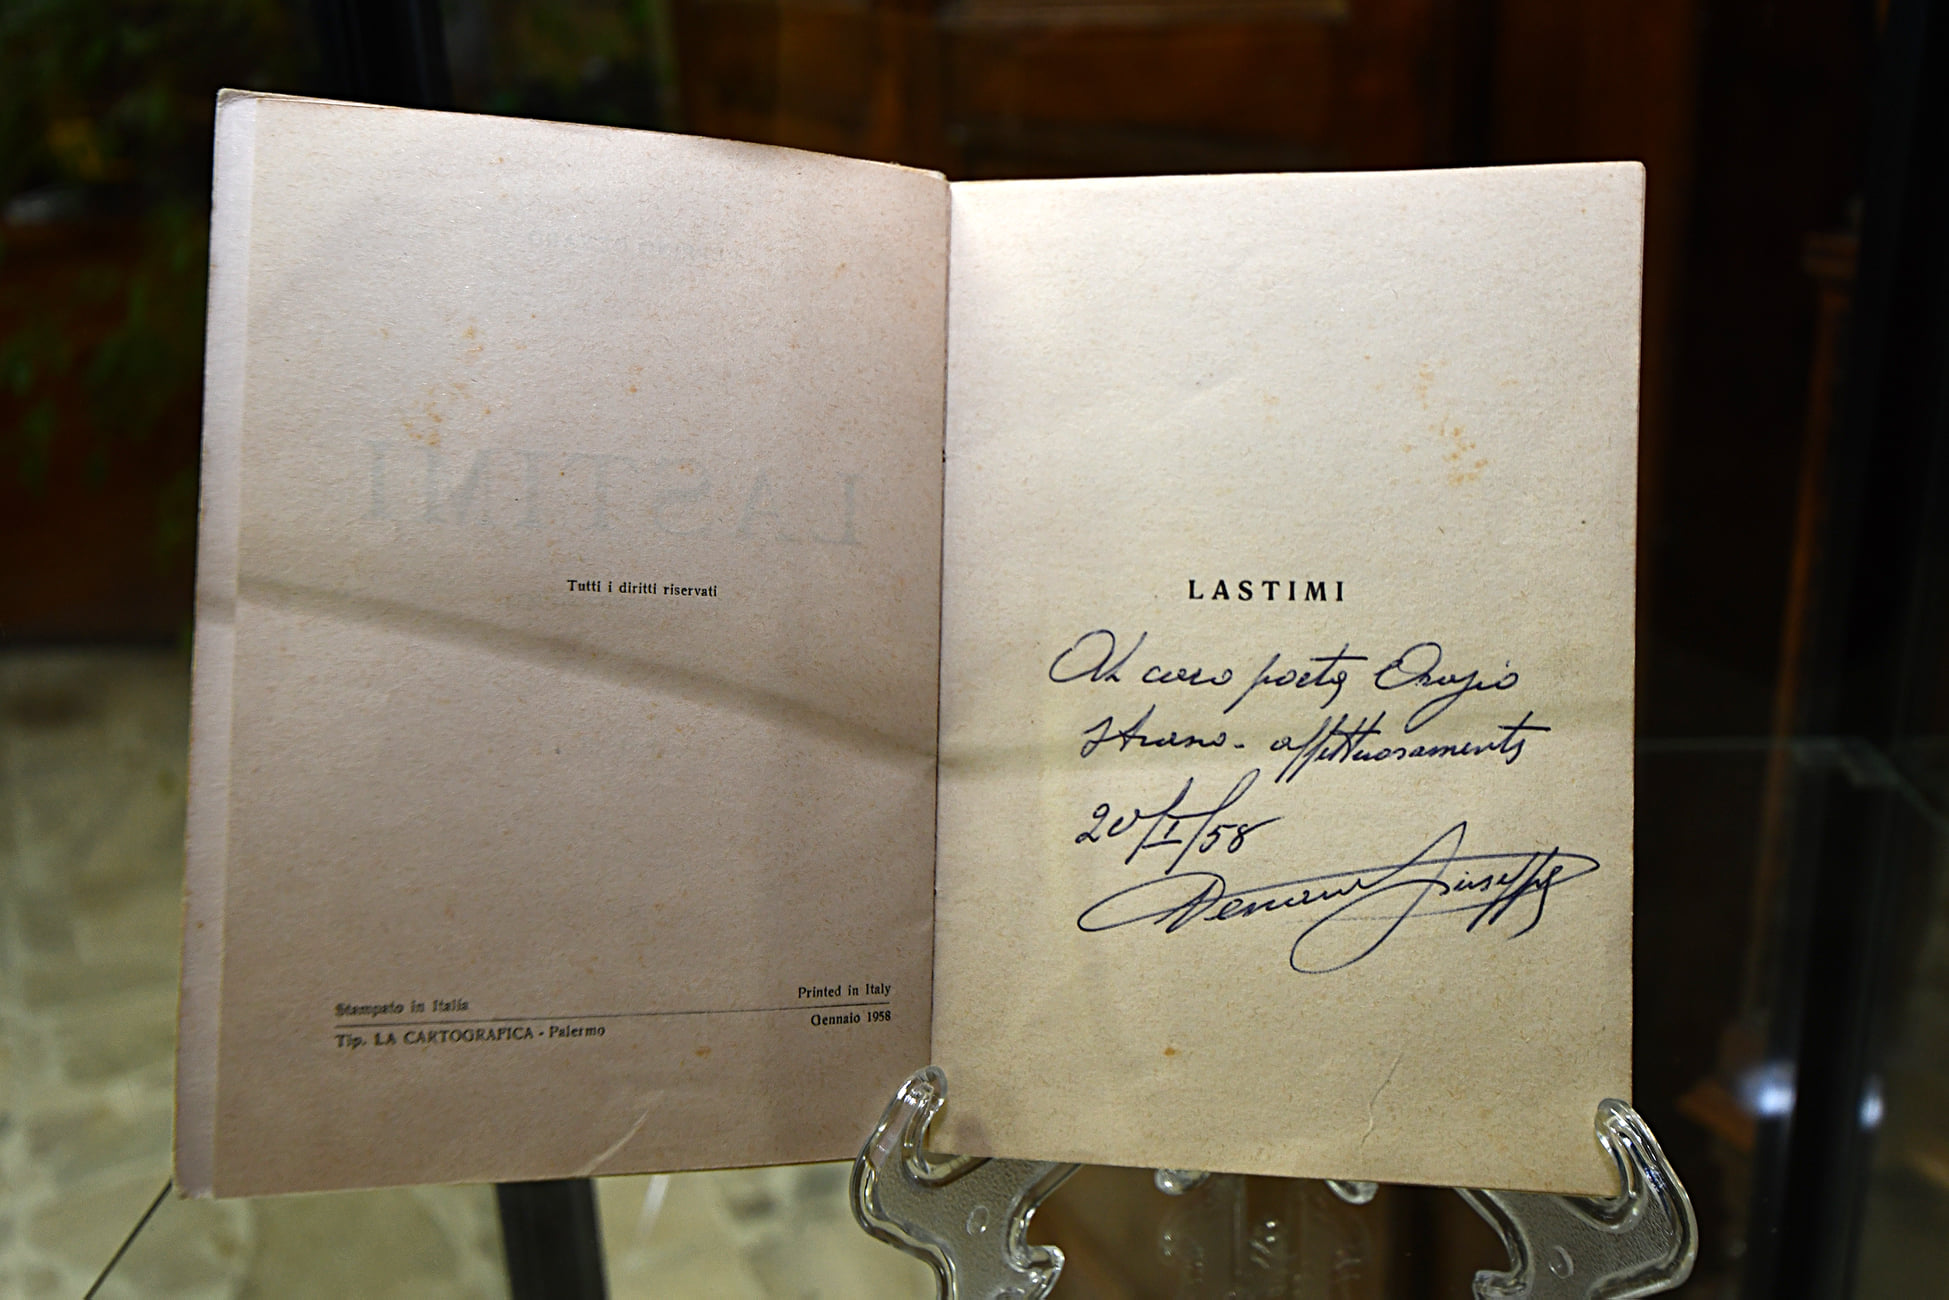 LASTIMI
Tutti i diritti riservati
Stampato in Italia
Printed in Italy
Tip. LA CARTOGRAFICA - Palermo
Gennaio 1958
LASTIMI
Al caro poeta Orazio
Strano - affettuosamente
20/I/58
Giuseppe